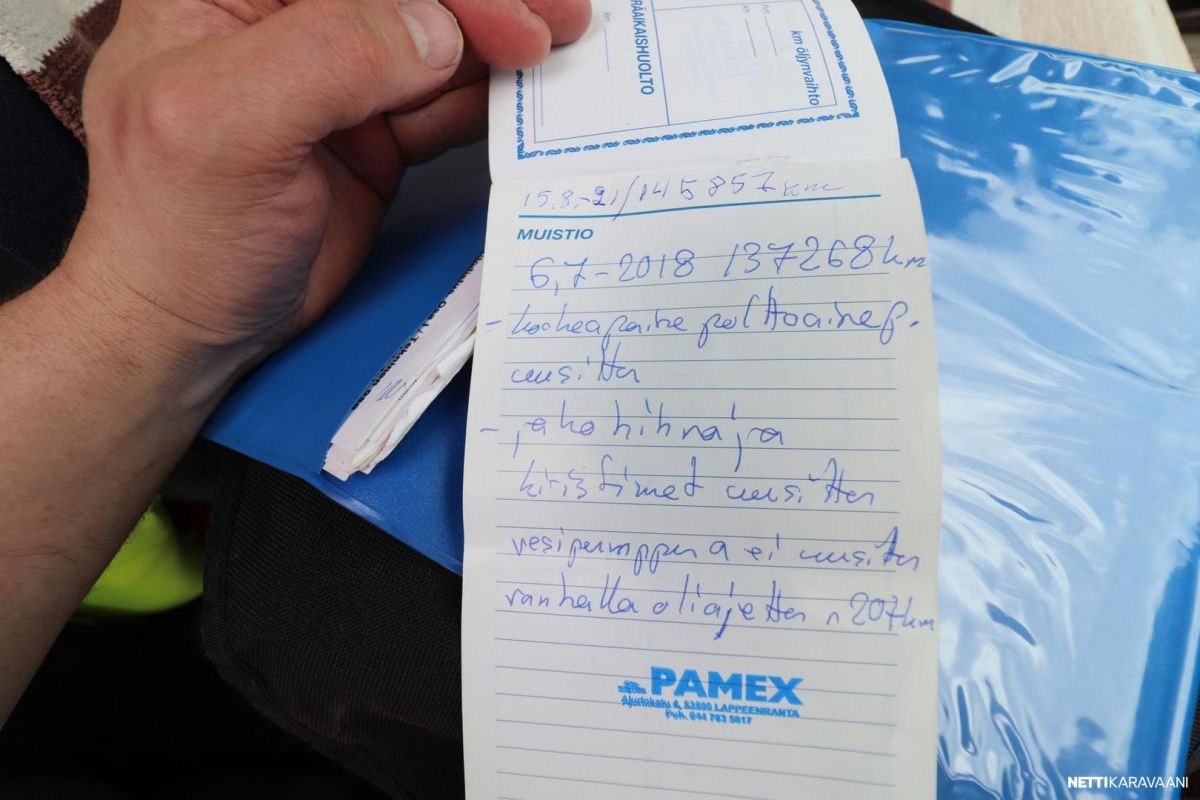 RÄAIKAISHUOLTO
Km
Pvm
Km
km öljynvaihto
15.8.-21/145857 km
MUISTIO
6,7-2018 137268 km
- korkeapaine polttoainep.
uusittu
- jakohihna ja
kiristimet uusittu
vesipumppua ei uusittu
vanhalla oli ajettu n 20tkm
PAMEX
Ajurinkatu 4, 53500 LAPPEENRANTA
Puh. 044 783 5017
NETTIKARAVAANI